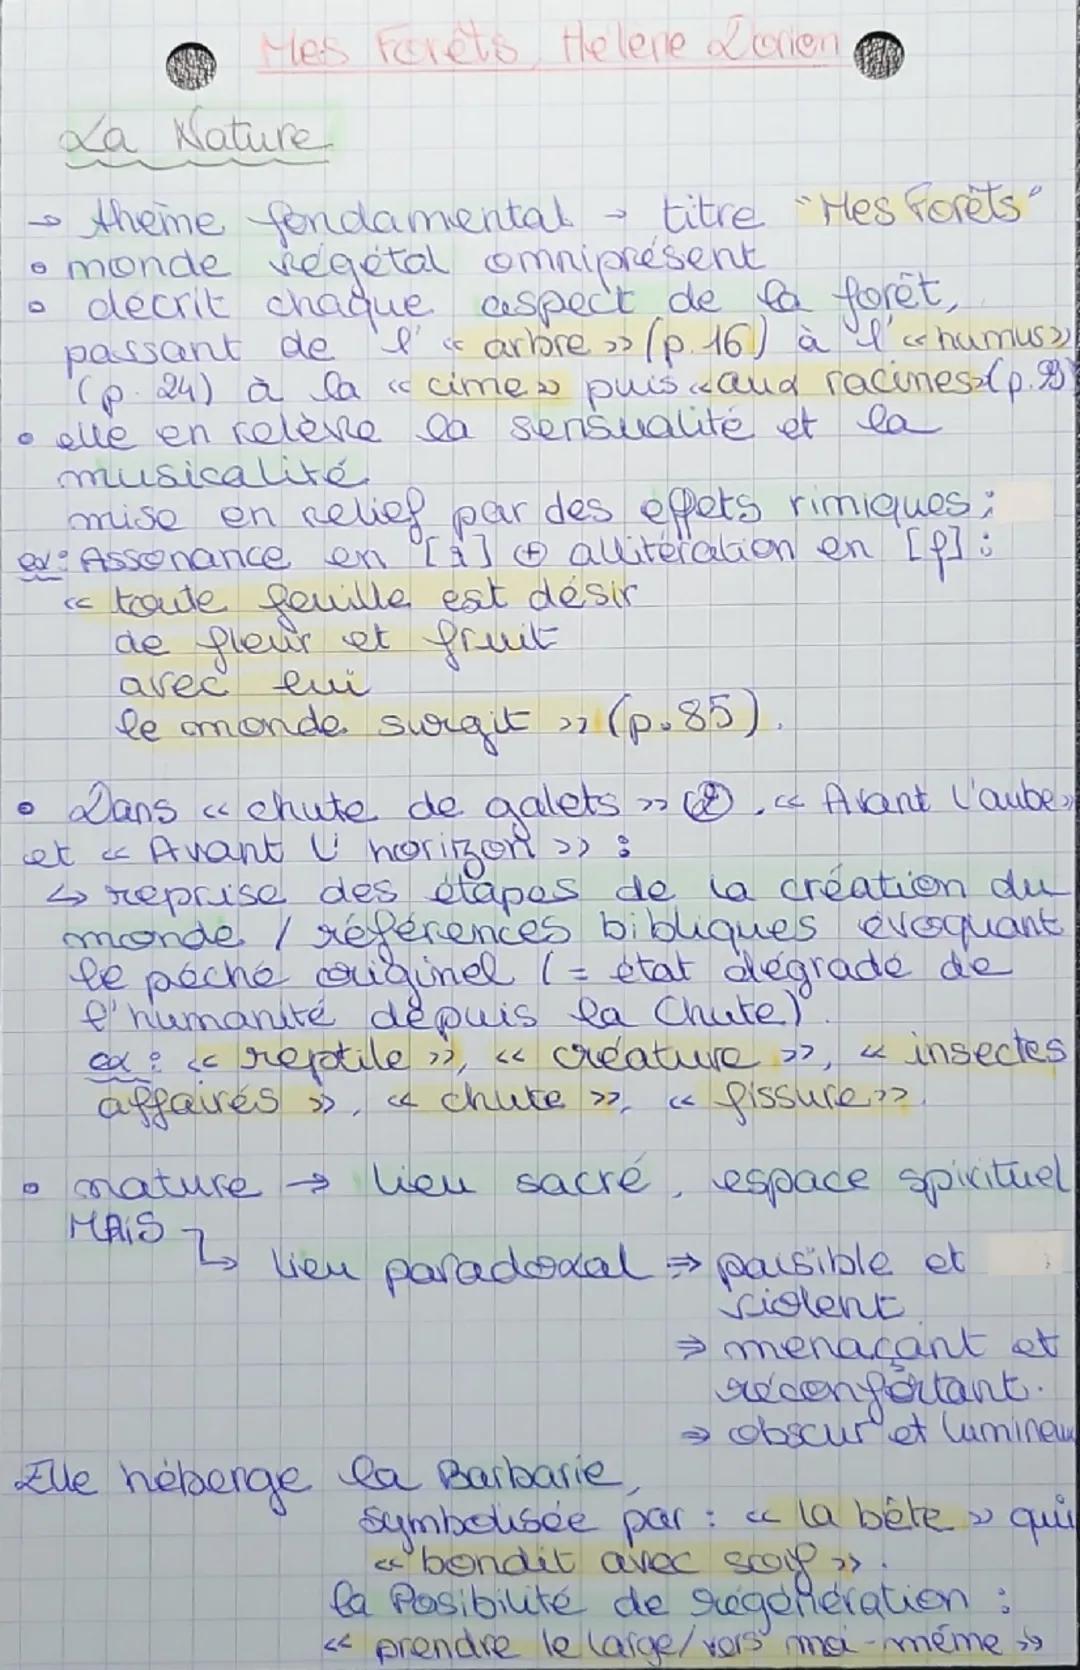 Mes Forêts, Helene Dorion
La Nature
→ thème fondamental → titre "Mes Forêts"
• monde végétal omniprésent
• décrit chaque aspect de la forêt,
passant de l'« arbre » (p. 16) à l'« humus »
(p. 24) à la « cime » puis « aux racines » (p.
• elle en relève la sensualité et la
musicalité
mise en relief par des effets rimiques :
ex : Assonance en [i] ⊕ allitération en [f] :
« toute feuille est désir
de fleur et fruit
avec lui
le monde surgit » (p. 85).
• Dans « chute de galets » , « Avant l'aube »
et « Avant l'horizon » :
↳ reprise des étapes de la création du
monde / références bibliques évoquant
le péché originel (= état dégradé de
l'humanité depuis la Chute).
ex : « reptile », « créature », « insectes
affairés », « chute », « fissure ».
• nature → lieu sacré, espace spirituel
MAIS
↳ lieu paradoxal ⇒ paisible et
violent
⇒ menaçant et
réconfortant.
⇒ obscur et lumineux
Elle héberge la Barbarie,
symbolisée par : « la bête » qui
« bondit avec soif ».
la Posibilité de régénération :
« prendre le large/vers moi-même »